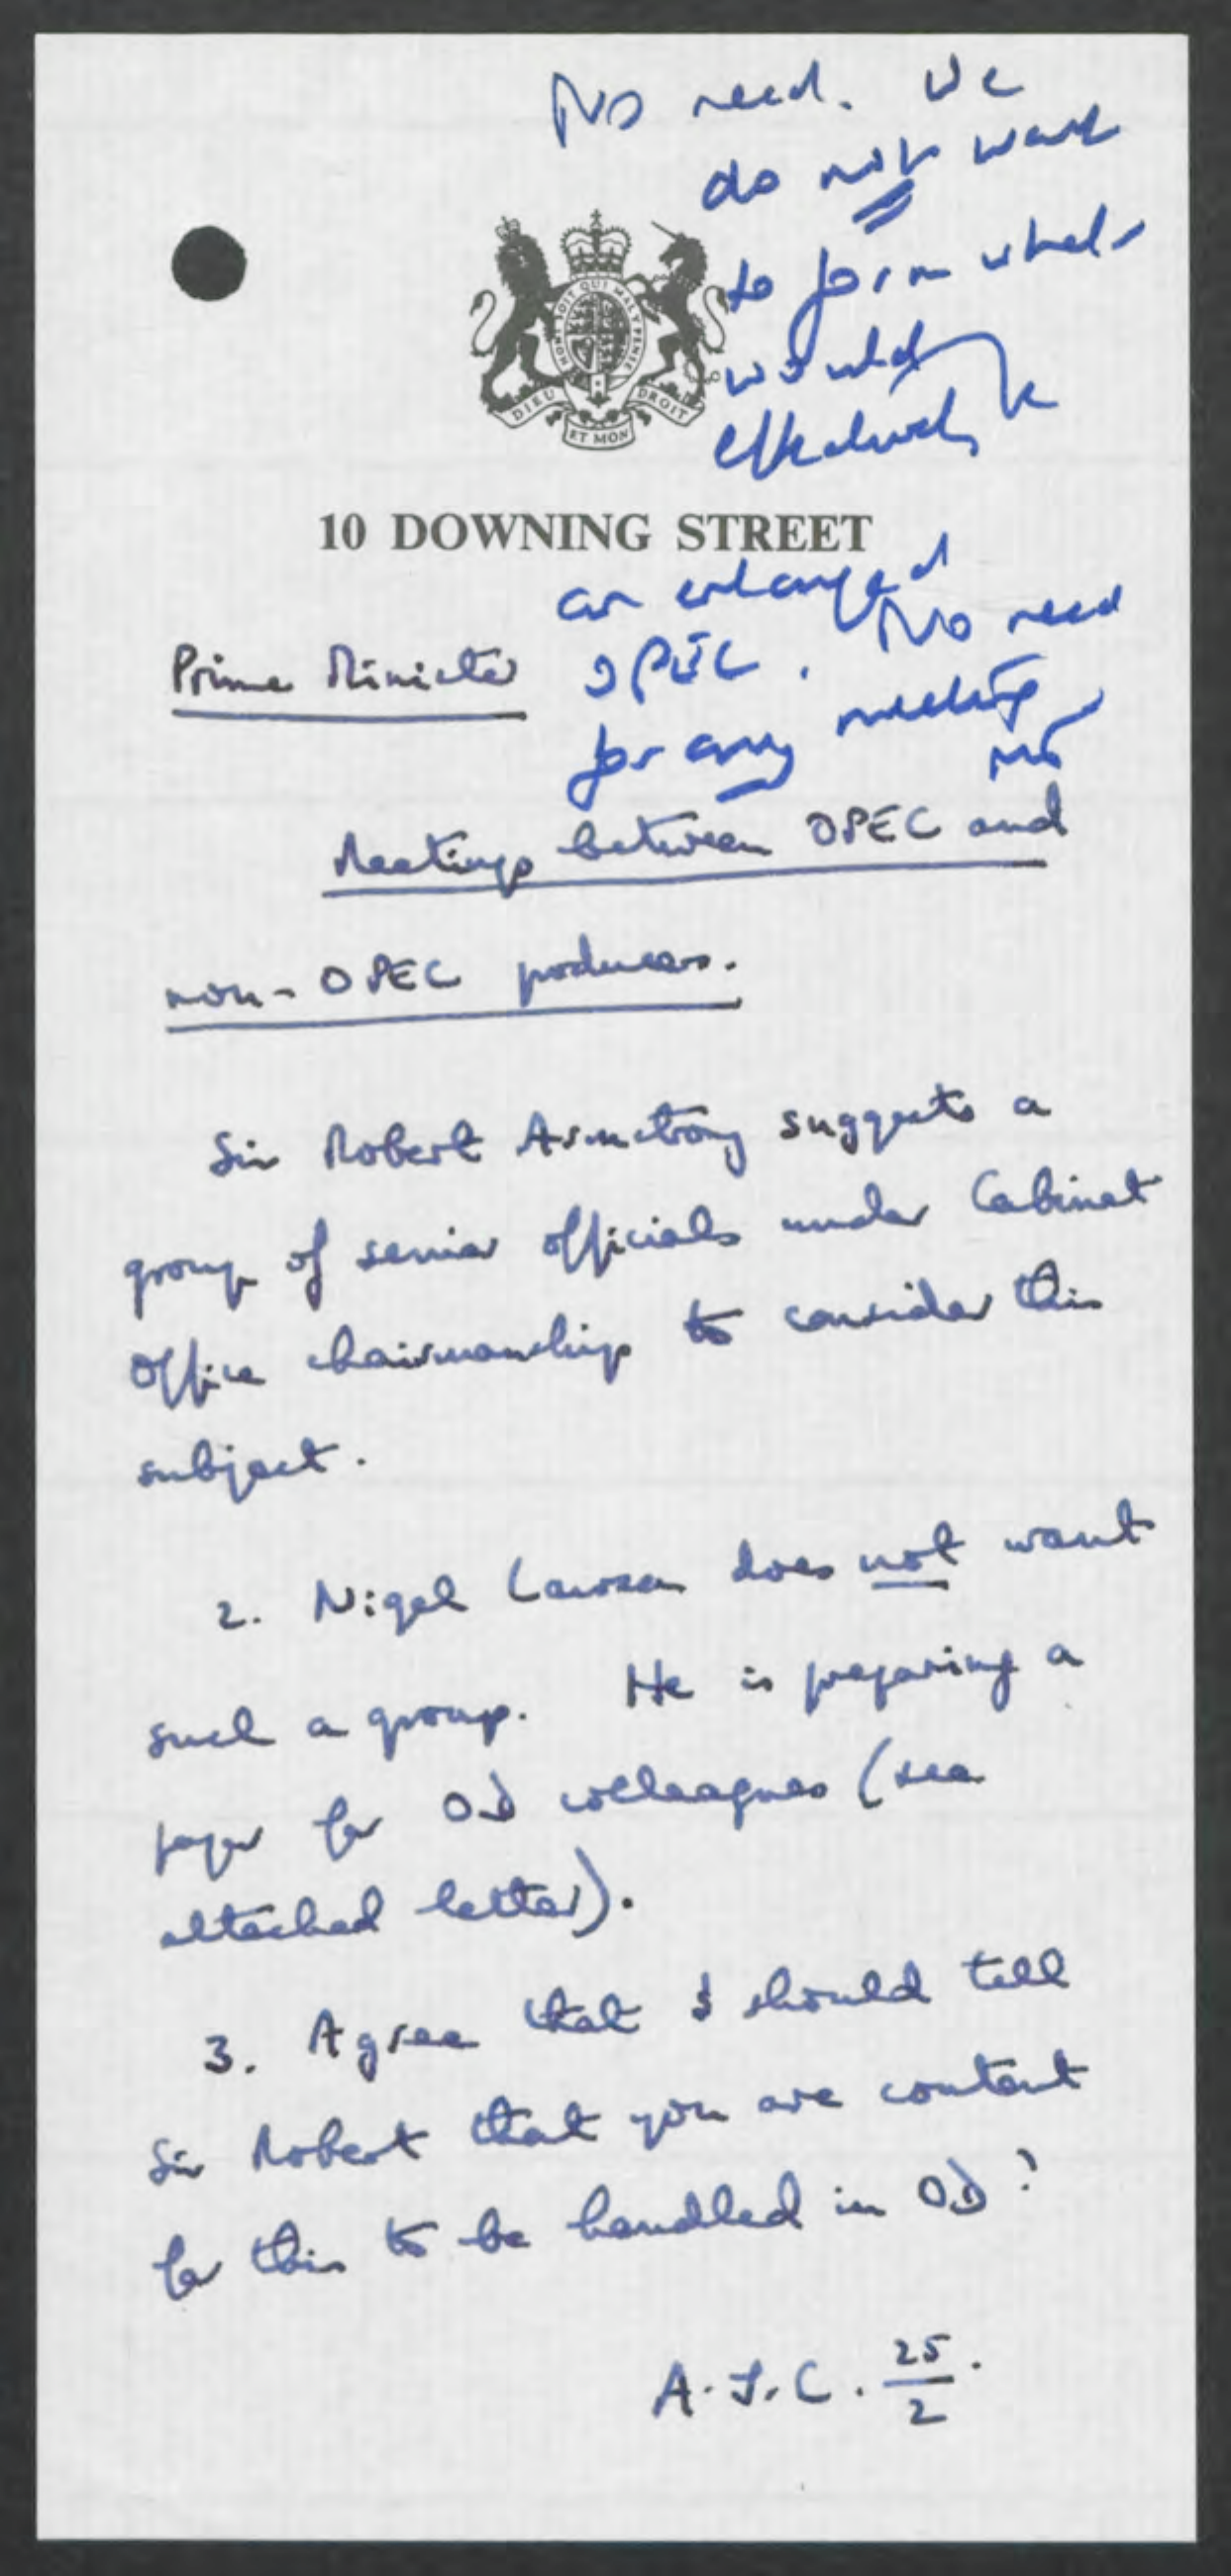 No need. We
do not want
to form what
would be
effectively
HONI SOIT QUI MAL Y PENSE
DIEU ET MON DROIT
10 DOWNING STREET
an enlarged
OPEC. No need
for any meeting
mt
Prime Minister
Meetings between OPEC and
non-OPEC producers.
Sir Robert Armstrong suggests a
group of senior officials under Cabinet
Office chairmanship to consider this
subject.
2. Nigel Lawson does not want
such a group. He is preparing a
paper for OD colleagues (see
attached letter).
3. Agree that I should tell
Sir Robert that you are content
for this to be handled in OD?
A.J.C. 25/2.